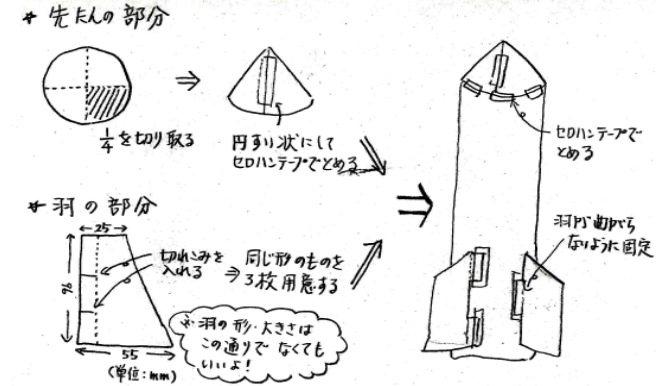 * 先たんの部分
1/4を切り取る
円すい状にして
セロハンテープでとめる
セロハンテープで
とめる
* 羽の部分
25
96
55
(単位:mm)
切れこみを
入れる
⇒ 同じ形のものを
3枚用意する
※羽の形・大きさは
この通りでなくても
いいよ!
羽が曲がら
ないように固定